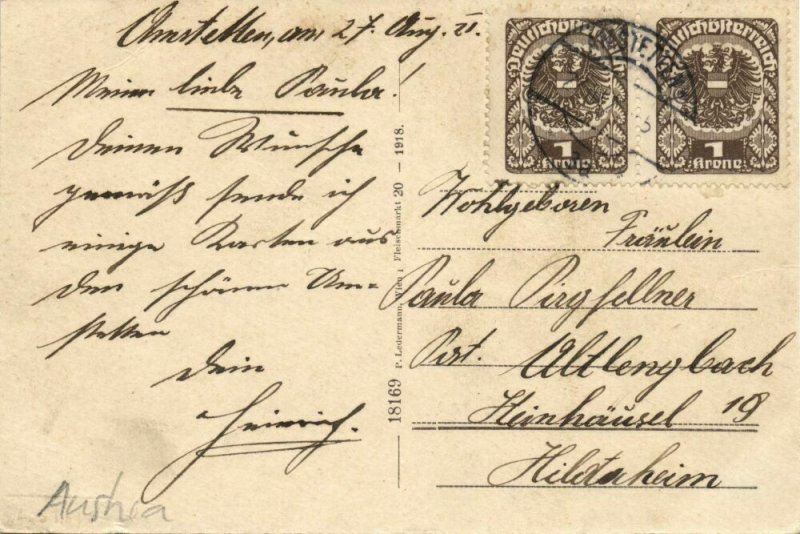 Amstetten, am 27. Aug. 21.
Meine liebe Paula!
Deinem Wunsche
gemäß sende ich
einige Karten aus
dem schönen Am-
stetten
Dein
Heinrich.
Austria
18169 P. Ledermann, Wien I Fleischmarkt 20 — 1918.
Deutschösterreich
1
Krone
Deutschösterreich
1
Krone
AMSTETTEN
Wohlgeboren
Fräulein
Paula Pirgfellner
Post. Altlengbach
Kleinhäusel 19